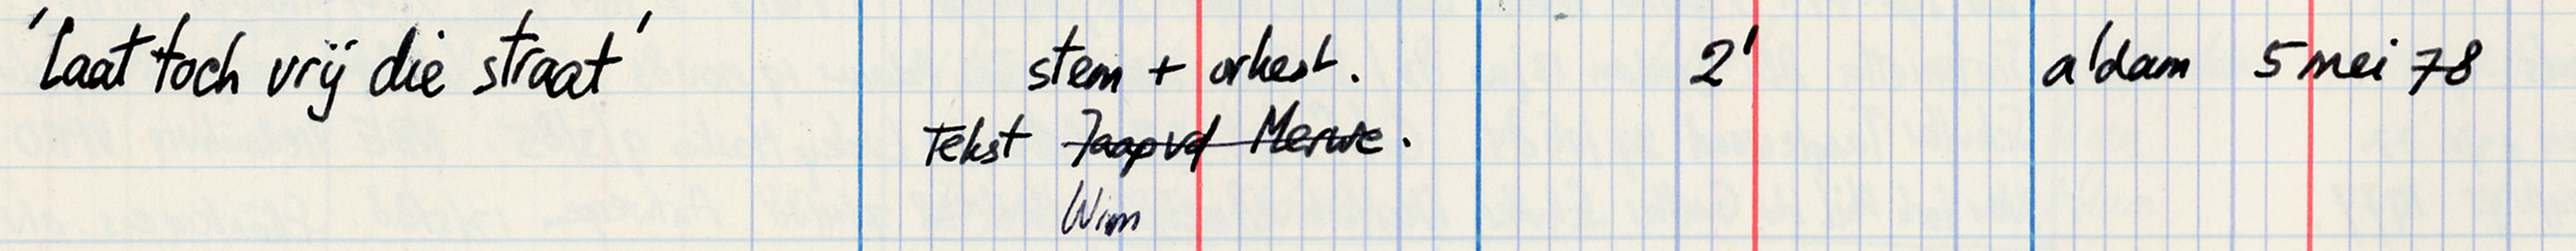 'Laat toch vrij die straat' stem + orkest. 2' a'dam 5 mei 78
Tekst Jaap vd Merwe.
Wim